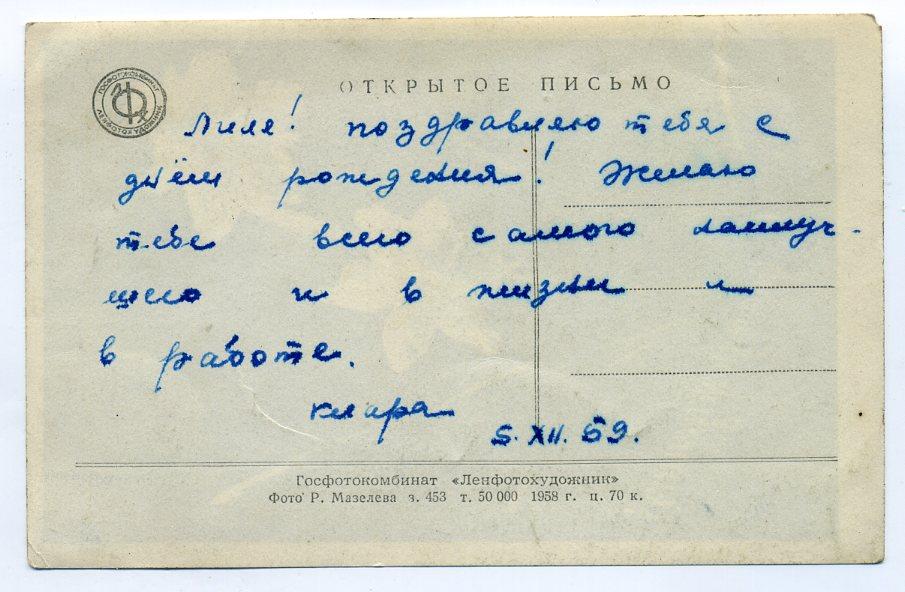 ГОСФОТОКОМБИНАТ
ЛЕНФОТОХУДОЖНИК
ОТКРЫТОЕ ПИСЬМО
Лиля! поздравляю тебя с
днём рождения! Желаю
тебе всего самого наилуч-
шего и в жизни и
в работе.
Клара
5. XII. 59.
Госфотокомбинат «Ленфотохудожник»
Фото Р. Мазелева з. 453 т. 50 000 1958 г. ц. 70 к.